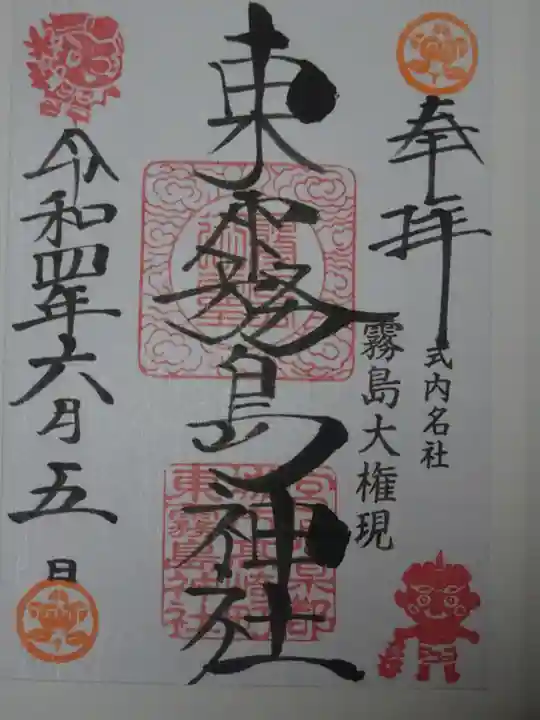 奉拝
式内名社
霧島大権現
東霧島神社
東霧島神社
令和四年六月五日